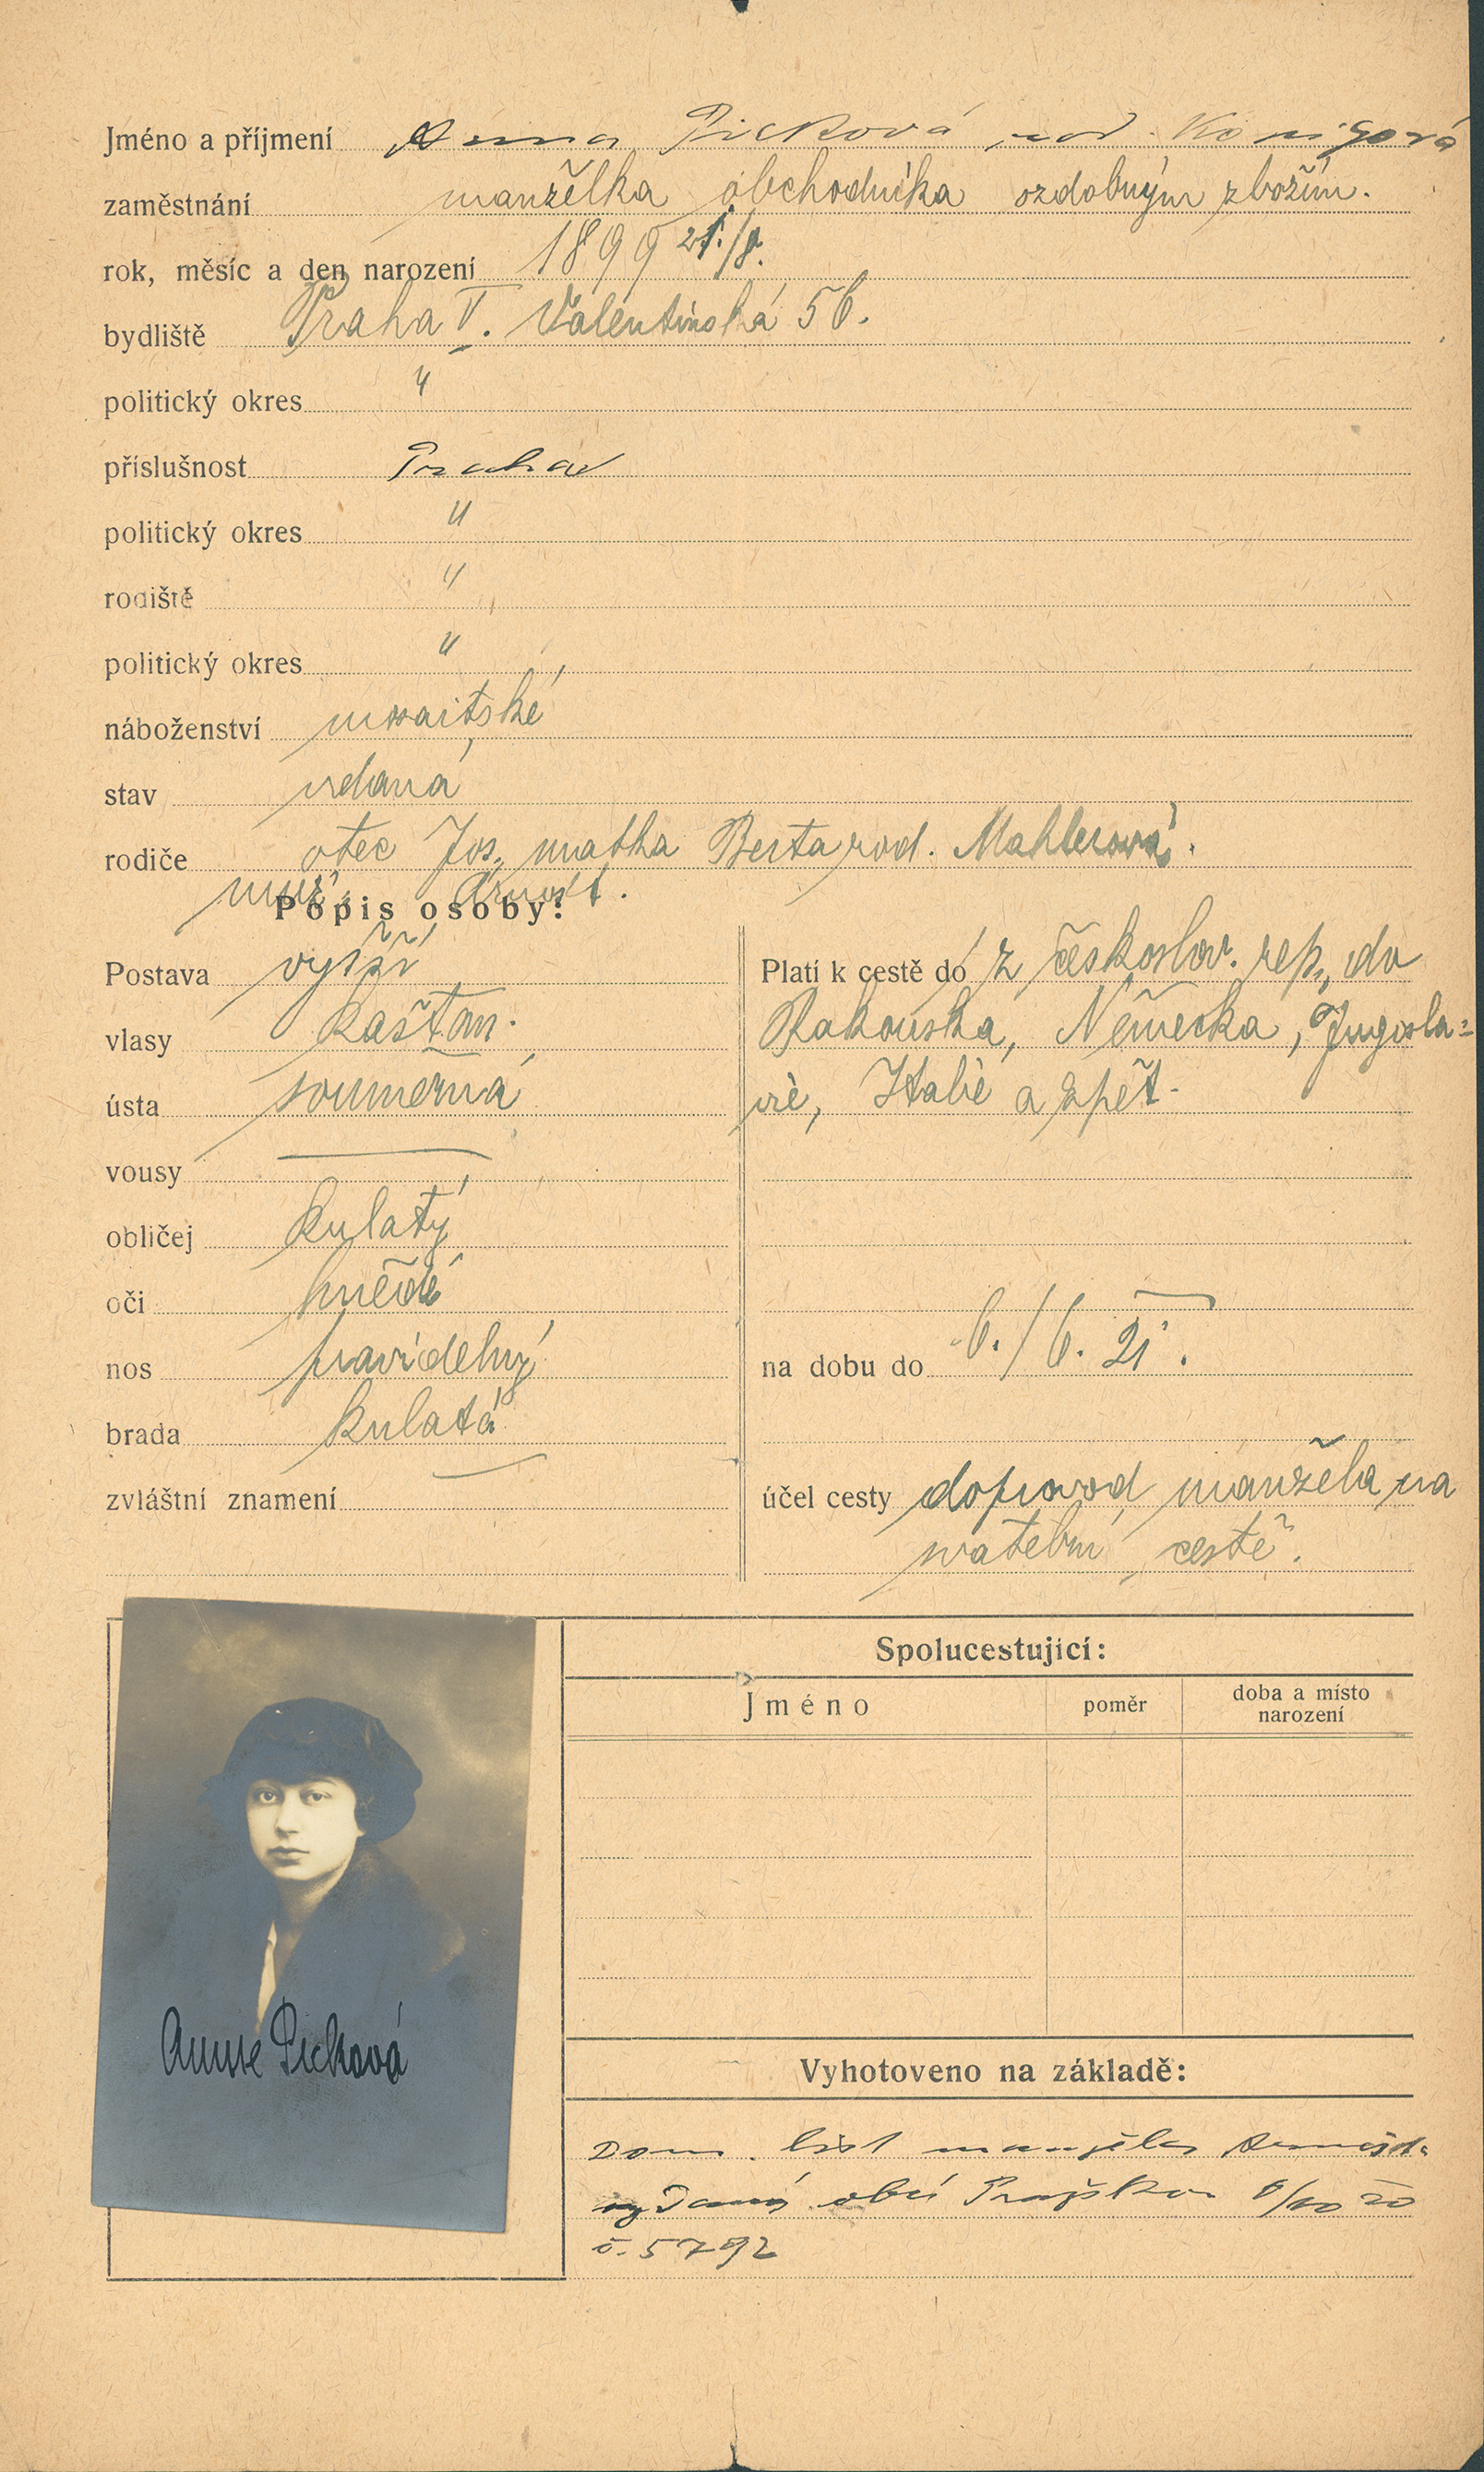 Jméno a příjmení Anna Picková, rod. Königová
zaměstnání manželka obchodníka ozdobným zbožím.
rok, měsíc a den narození 1899 21./8.
bydliště Praha V. Valentinská 56.
politický okres "
příslušnost Praha
politický okres "
rodiště "
politický okres "
náboženství mosaitské
stav vdaná
rodiče otec Jos., matka Berta rod. Mahlerová.
muž Arnošt.
Popis osoby:
Postava vyšší
vlasy kaštan.
ústa souměrná
vousy —
obličej kulatý
oči hnědé
nos pravidelný
brada kulatá
zvláštní znamení —
Platí k cestě do z českoslov. rep., do
Rakouska, Německa, Jugosla=
vie, Italie a zpět.
na dobu do 6./6. 21.
účel cesty doprovod manžela na
svatební cestě.
Spolucestující:
Jméno poměr doba a místo
narození
Annie Picková
Vyhotoveno na základě:
Dom. list manžela Arnošta
vydaný obcí Pražskou 6/10 20
č. 5792